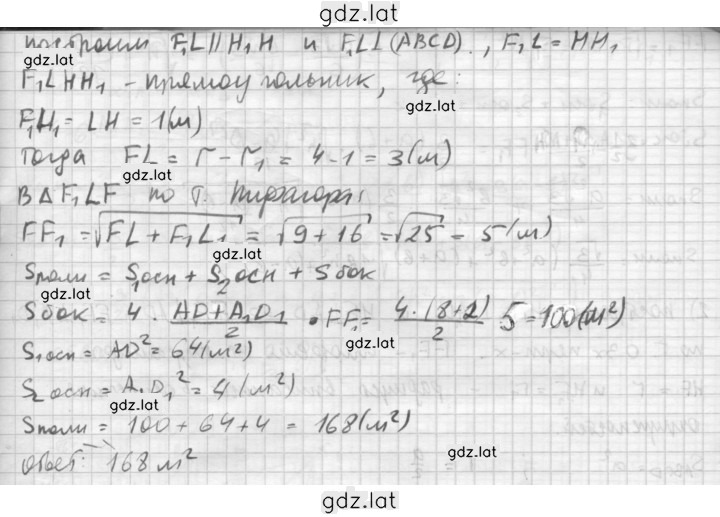 gdz.lat
построим F₁L || H₁H и F₁L⊥(ABCD)., F₁L = HH₁
gdz.lat
F₁LHH₁ - прямоугольник, где:
gdz.lat
F₁H₁ = LH = 1(м)
Тогда FL = r - r₁ = 4 - 1 = 3(м)
gdz.lat
В △F₁LF по т. Пифагора:
FF₁ = √FL + F₁L₁ = √9 + 16 = √25 = 5(м)
gdz.lat
Sполн = S₁осн + S₂осн + Sбок
gdz.lat
Sбок = 4 · (AD + A₁D₁)/2 · FF₁ = 4·(8+2)/2 5 = 100(м²)
gdz.lat
S₁осн = AD² = 64(м²)
S₂осн = A₁D₁² = 4(м²)
gdz.lat
Sполн = 100 + 64 + 4 = 168(м²)
gdz.lat
ответ: 168 м²
gdz.lat
gdz.lat